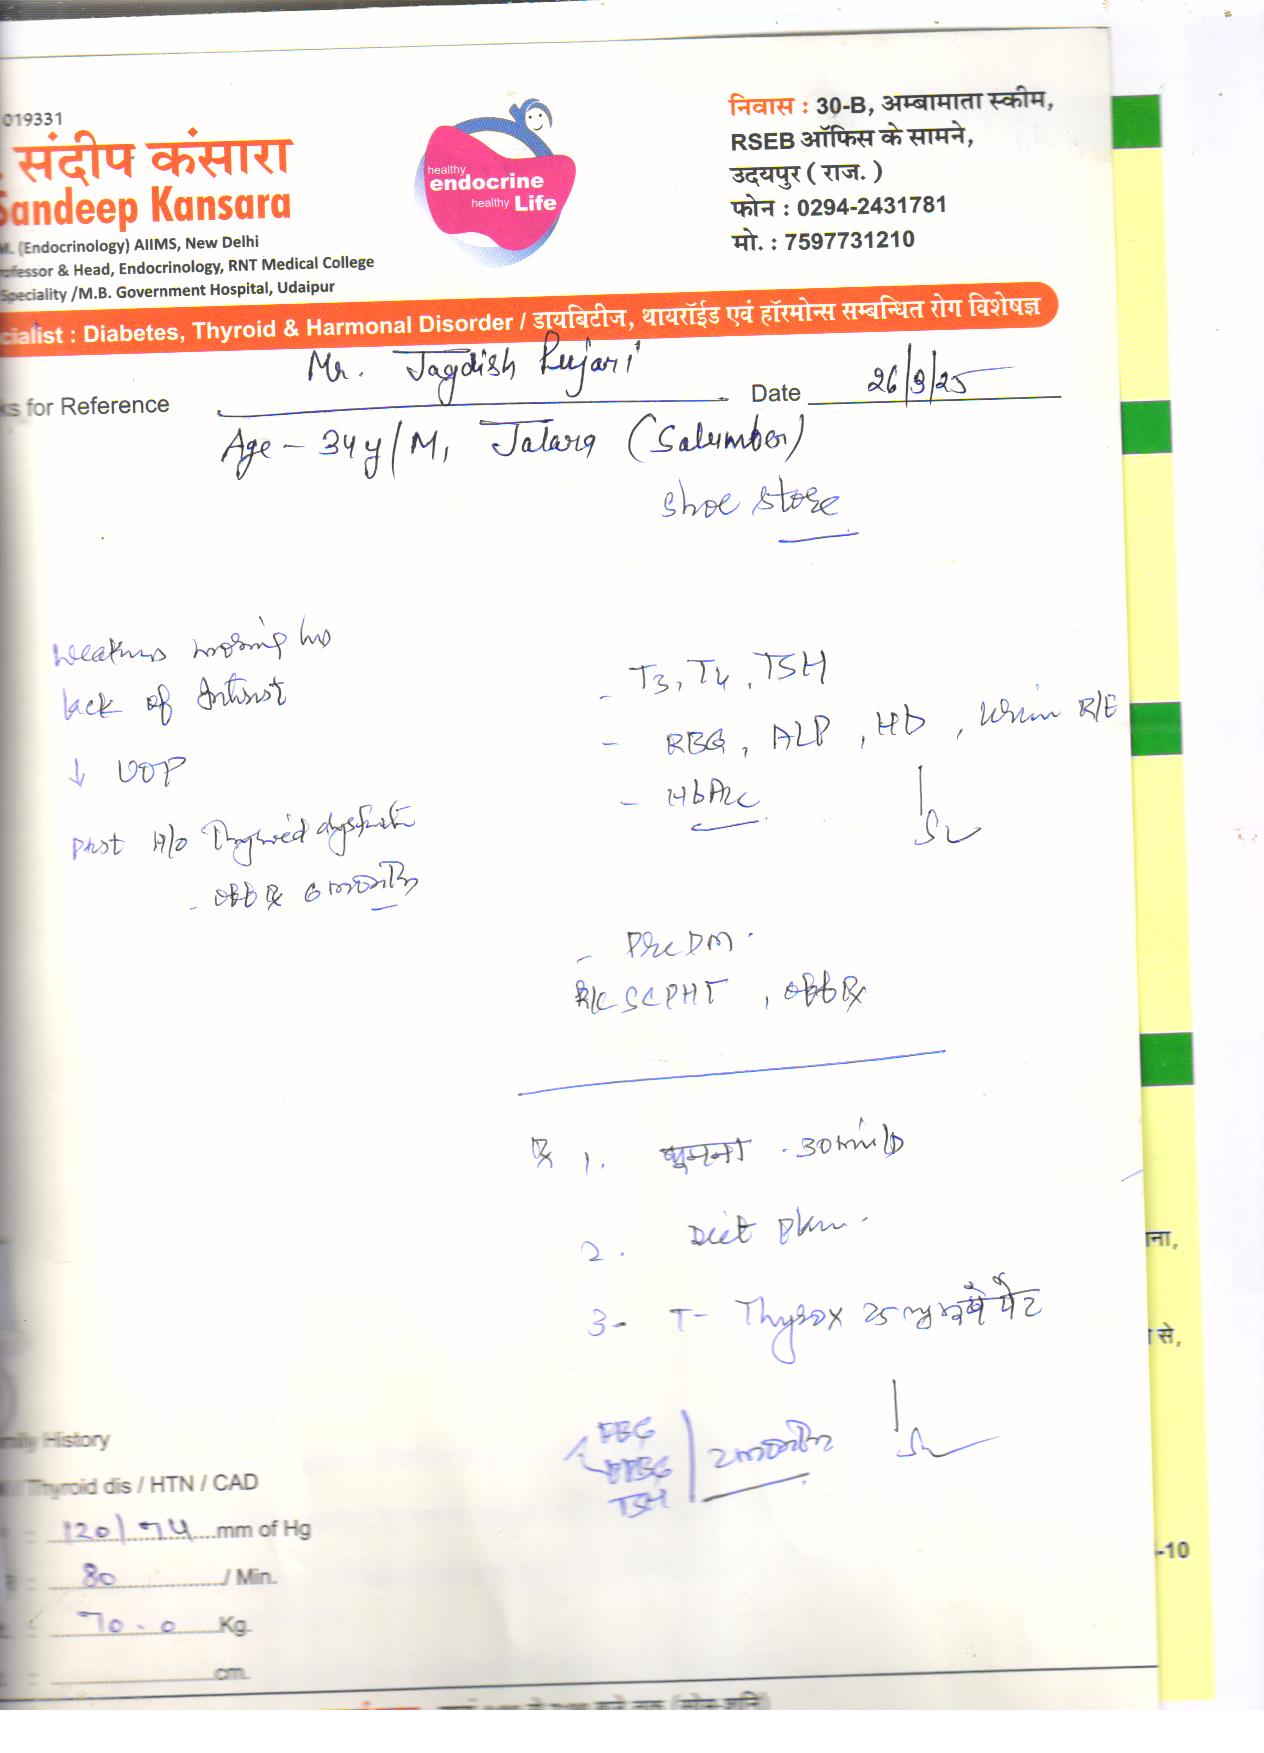 019331
संदीप कंसारा
Sandeep Kansara
(Endocrinology) AIIMS, New Delhi
ofessor & Head, Endocrinology, RNT Medical College
Speciality /M.B. Government Hospital, Udaipur
healthy
endocrine
healthy Life
निवास : 30-B, अम्बामाता स्कीम,
RSEB ऑफिस के सामने,
उदयपुर ( राज. )
फोन : 0294-2431781
मो. : 7597731210
cialist : Diabetes, Thyroid & Harmonal Disorder / डायबिटीज, थायरॉईड एवं हॉरमोन्स सम्बन्धित रोग विशेषज्ञ
Mr. Jagdish Pujari
ks for Reference
Date 26/3/25
Age - 34y/M, Jatara (Salumber)
Shoe store
Weakness morning hrs
lack of Intrest
↓ UOP
Past H/o Thyroid
- off Rx 6 months
- T3, T4, TSH
- RBG, ALP, Hb, Urine R/E
- HbA1c
- PreDM
SCPHT, off Rx
Rx 1. घूमना - 30 min/D
2. Diet plan
3- T- Thyrox 25 पेट
FBG
PPBG
TSH
2 months
mily History
Thyroid dis / HTN / CAD
= 120/74 mm of Hg
= 80 / Min.
= 70.0 Kg.
= cm.
ना,
से,
-10